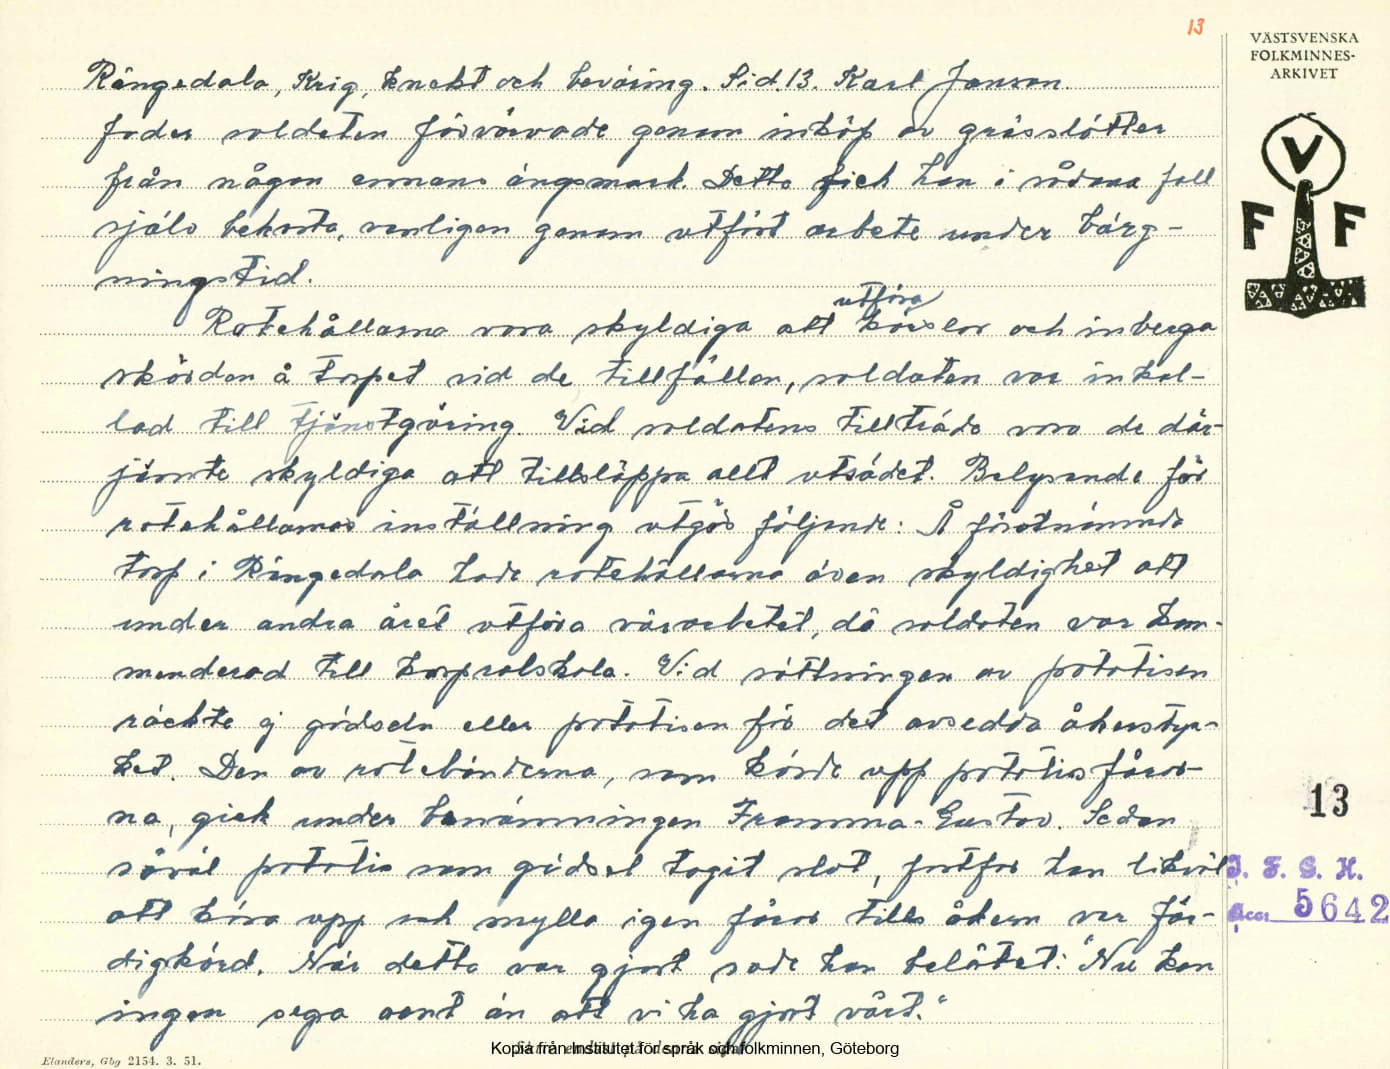 13
VÄSTSVENSKA
FOLKMINNES-
ARKIVET
V
F F
Rångedala, Krig, knekt och beväring. Sid. 13. Karl Janson.
foder soldaten förvärvade genom inköp av grässlåtter
från någon annans ängsmark. Detta fick han i sådana fall
själv bekosta, vanligen genom utfört arbete under bärg-
ningstid.
Rotehållarna voro skyldiga att utföra körslor och inberga
skörden å torpet vid de tillfällen, soldaten var inkal-
lad till tjänstgöring. Vid soldatens tillträde voro de där-
jämte skyldiga att tillsläppa allt utsädet. Belysande för
rotehållarnas inställning utgör följande: Å förutnämnda
torp i Rångedala hade rotehållarna även skyldighet att
under andra året utföra vårarbetet, då soldaten var kom-
menderad till korpralskola. Vid sättningen av potatisen
räckte ej gödseln eller potatisen för det avsedda åkersty-
ket. Den av rotebönderna, som körde upp potatisfåror-
na, gick under benämningen Framma-Gustav. Sedan
såväl potatis som gödsel tagit slut, fortfor han likväl
att köra upp och mylla igen fåror tills åkern var fär-
digkörd. När detta var gjort sade han belåtet: "Nu kan
ingen säga annat än att vi ha gjort vårt."
13
I. F. G. H.
Acc. 5642
Elanders, Gbg 2154. 3. 51.
Kopia från Institutet för språk och folkminnen, Göteborg